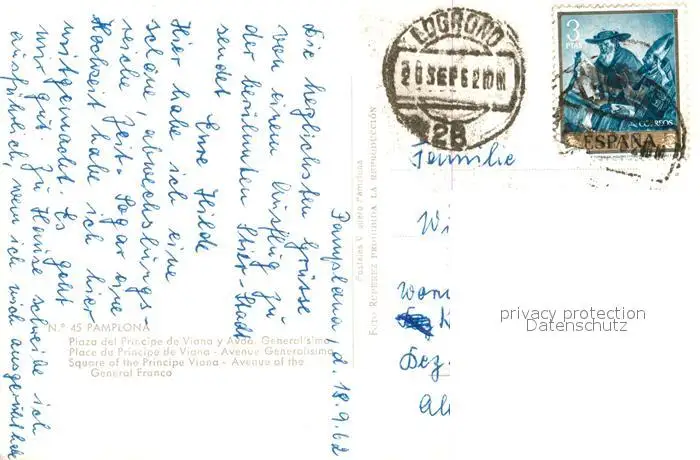 Pamplona, d. 18.9.62
Die herzlichsten Grüsse
von einem Ausflug zu
der berühmten Stier-Stadt
sendet Eure Hilde
Hier habe ich eine
schöne, abwechslungs-
reiche Zeit. Sogar eine
Hochzeit habe ich hier
mitgemacht. Es geht
mir gut. Zu Hause schreibe ich
ausführlich, wenn ich mich ausgeruht habe
N.º 45 PAMPLONA
Plaza del Principe de Viana y Avda. Generalisimo
Place du Principe de Viana - Avenue Generalisimo
Square of the Principe Viana - Avenue of the
General Franco
FOTO RUPEREZ PROHIBIDA LA REPRODUCCIÓN
LOGROÑO
20 SEP 62 10M
28
3
PTAS
CORREOS
ESPAÑA
Familie
Wi
Bez.
privacy protection
Datenschutz